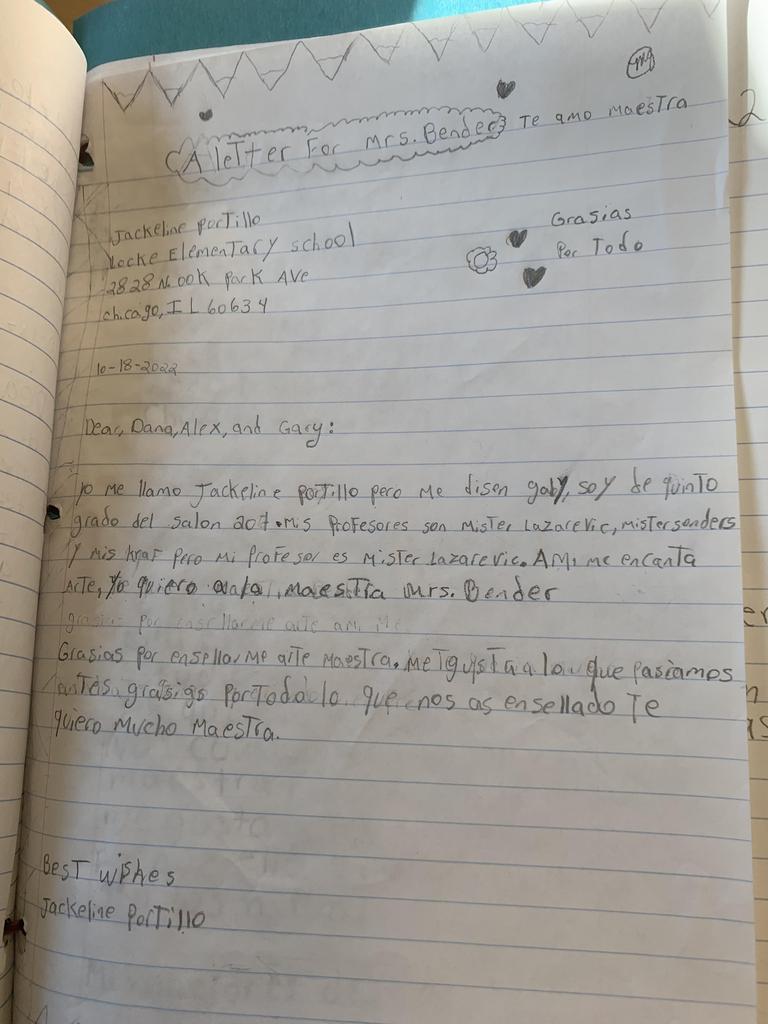 A letter For Mrs. Bender Te amo maestra
Grasias
Por Todo
Jackeline Portillo
Locke Elementary school
2828 N. OOK Park AVe
chicago, IL 60634
10-18-2022
Dear, Dana, Alex, and Gary:
Yo me llamo Jackeline Portillo pero me disen gaby, soy de quinto
grado del salon 207. mis Profesores son Mister Lazarevic, mister sanders
y mis kraf pero mi profesor es Mister Lazarevic. A mi me encanta
Arte, Yo quiero ala maestra Mrs. Bender
grasias por ensellarme arte a mi me
Grasias por ensellarme arte maestra. me gusta lo que pasiamos
antes grasias por Todo lo que nos as ensellado Te
quiero mucho maestra.
Best wishes
Jackeline Portillo